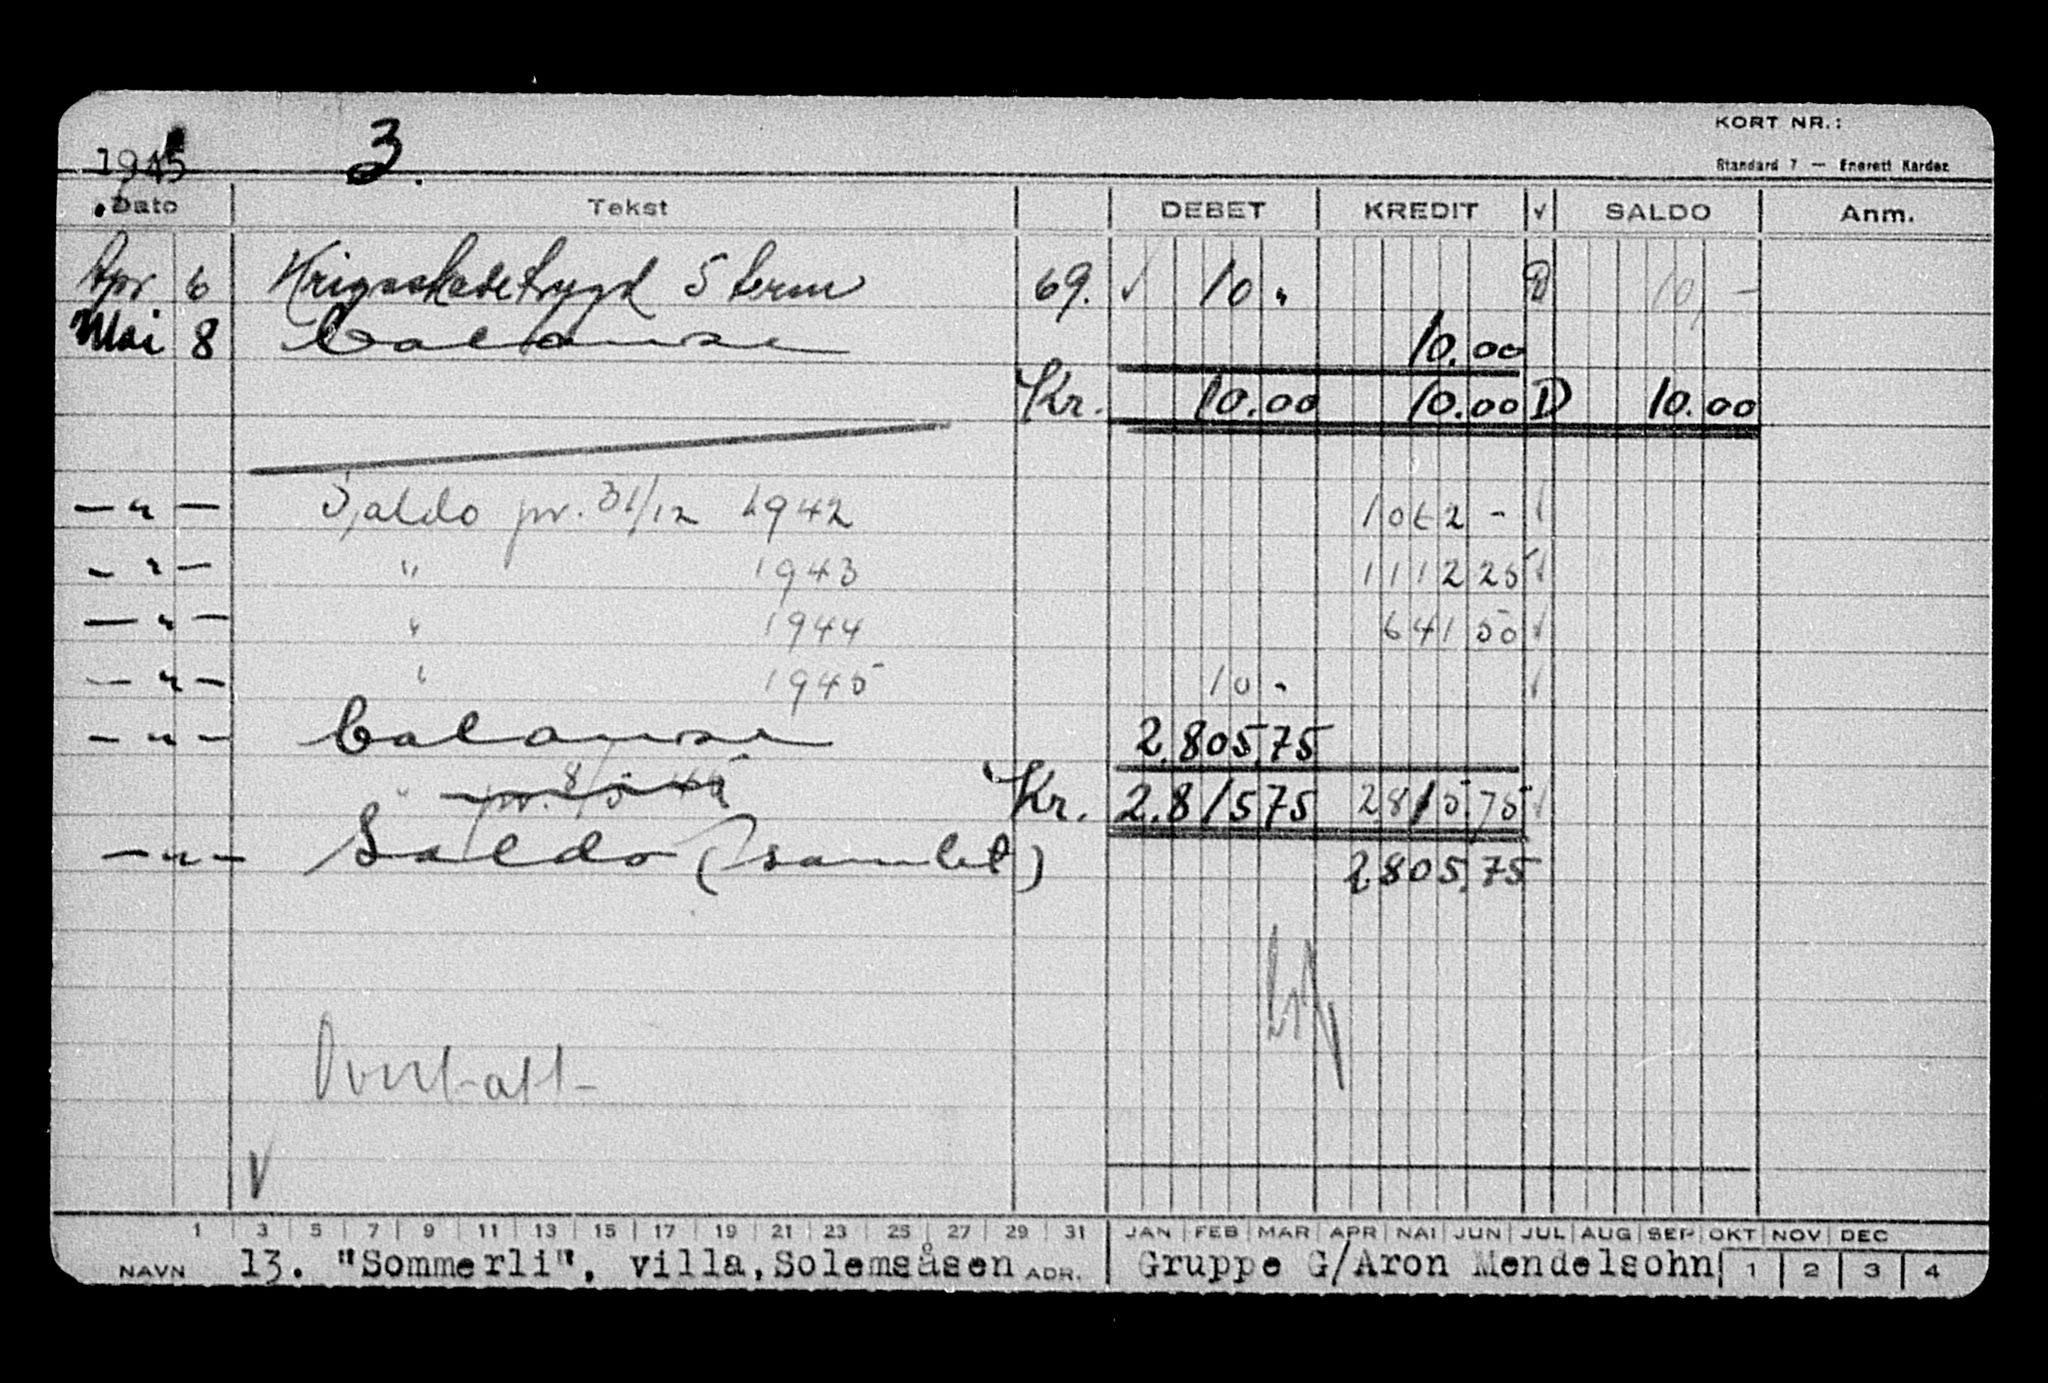 KORT NR.:
1945 3.
Standard 7 — Enerett Kardex
Dato Tekst DEBET KREDIT √ SALDO Anm.
Apr 6 Krigsskadetrygd 5 term 69. √ 10 " D 10,-
Mai 8 balanse 10.00
Kr. 10.00 10.00 D 10.00
—"— Saldo pr. 31/12 1942 1062 - √
—"— " 1943 1112 25 √
—"— " 1944 641 50 √
—"— " 1945 10 - √
—"— balanse 2.805.75
" pr. 8/5 45 Kr. 2.815 75 2815.75 √
—"— Saldo (samlet) 2.805.75
√
1 3 5 7 9 11 13 15 17 19 21 23 25 27 29 31 JAN FEB MAR APR MAI JUN JUL AUG SEP OKT NOV DEC
NAVN 13. "Sommerli", villa, Solemsåsen ADR. Gruppe G/Aron Mendelsohn 1 2 3 4